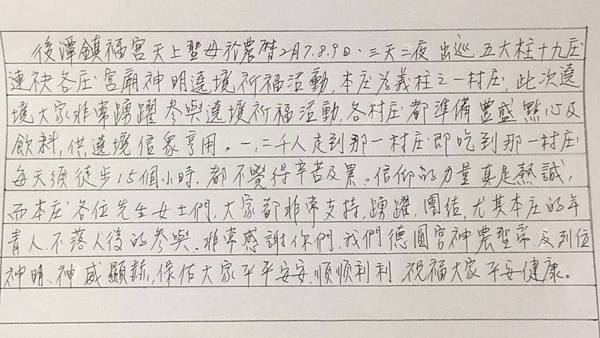 後潭鎮福宮天上聖母於農曆2月7.8.9日.三天二夜 出巡 五大柱十九庄
連袂各庄宮廟神明遶境祈福活動,本庄為義柱之一村庄,此次遶
境大家非常踴躍參與遶境祈福活動,各村庄都準備豐盛點心及
飲料,供遶境信眾享用。一,二千人走到那一村庄即吃到那一村庄
每天須徒步15個小時.都不覺得辛苦及累.信仰的力量真是熱誠,
而本庄各位先生女士們.大家都非常支持.踴躍.團結.尤其本庄的年
青人.不落人後的參與.非常感謝你們.我們德團宮神農聖帝.及列位
神明.神威顯赫,保佑大家平平安安.順順利利 祝福大家平安健康。